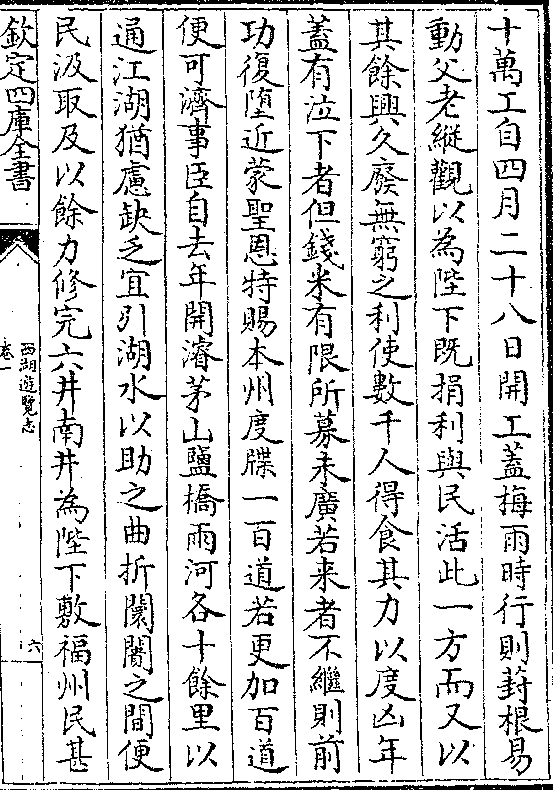 十萬工自四月二十八日開工蓋梅雨時行則葑根易
動父老縱觀以為陛下既捐利與民活此一方而又以
其餘興久廢無窮之利使數千人得食其力以度凶年
蓋有泣下者但錢米有限所募未廣若来者不繼則前
功復墮近蒙聖恩特賜本州度牒一百道若更加百道
便可濟事臣自去年開濬茅山鹽橋兩河各十餘里以
通江湖猶慮缺乏宜引湖水以助之曲折闤闠之間便
民汲取及以餘力修完六井南井為陛下敷福州民甚
欽定四庫全書
西湖遊覽志
卷一
六